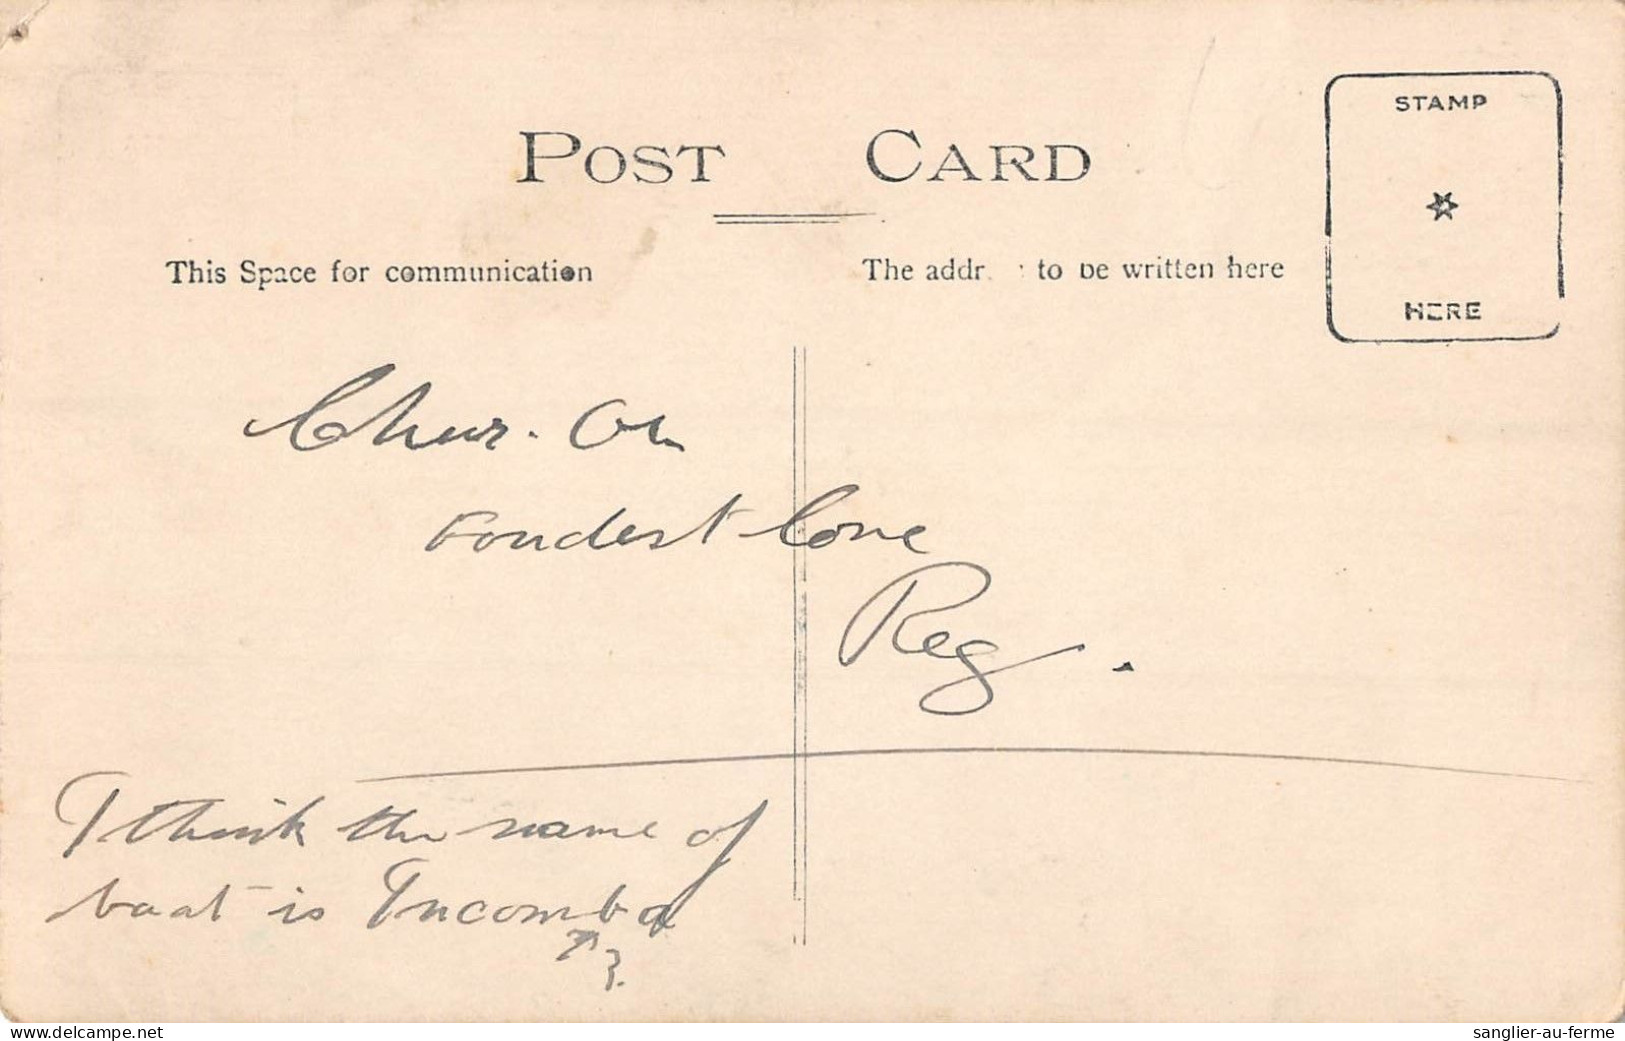 POST CARD
STAMP
HERE
This Space for communication
The addr to be written here
Cheer. Oh
Fondest love
Reg.
I think the name of
boat is Incomba
?.
www.delcampe.net
sanglier-au-ferme